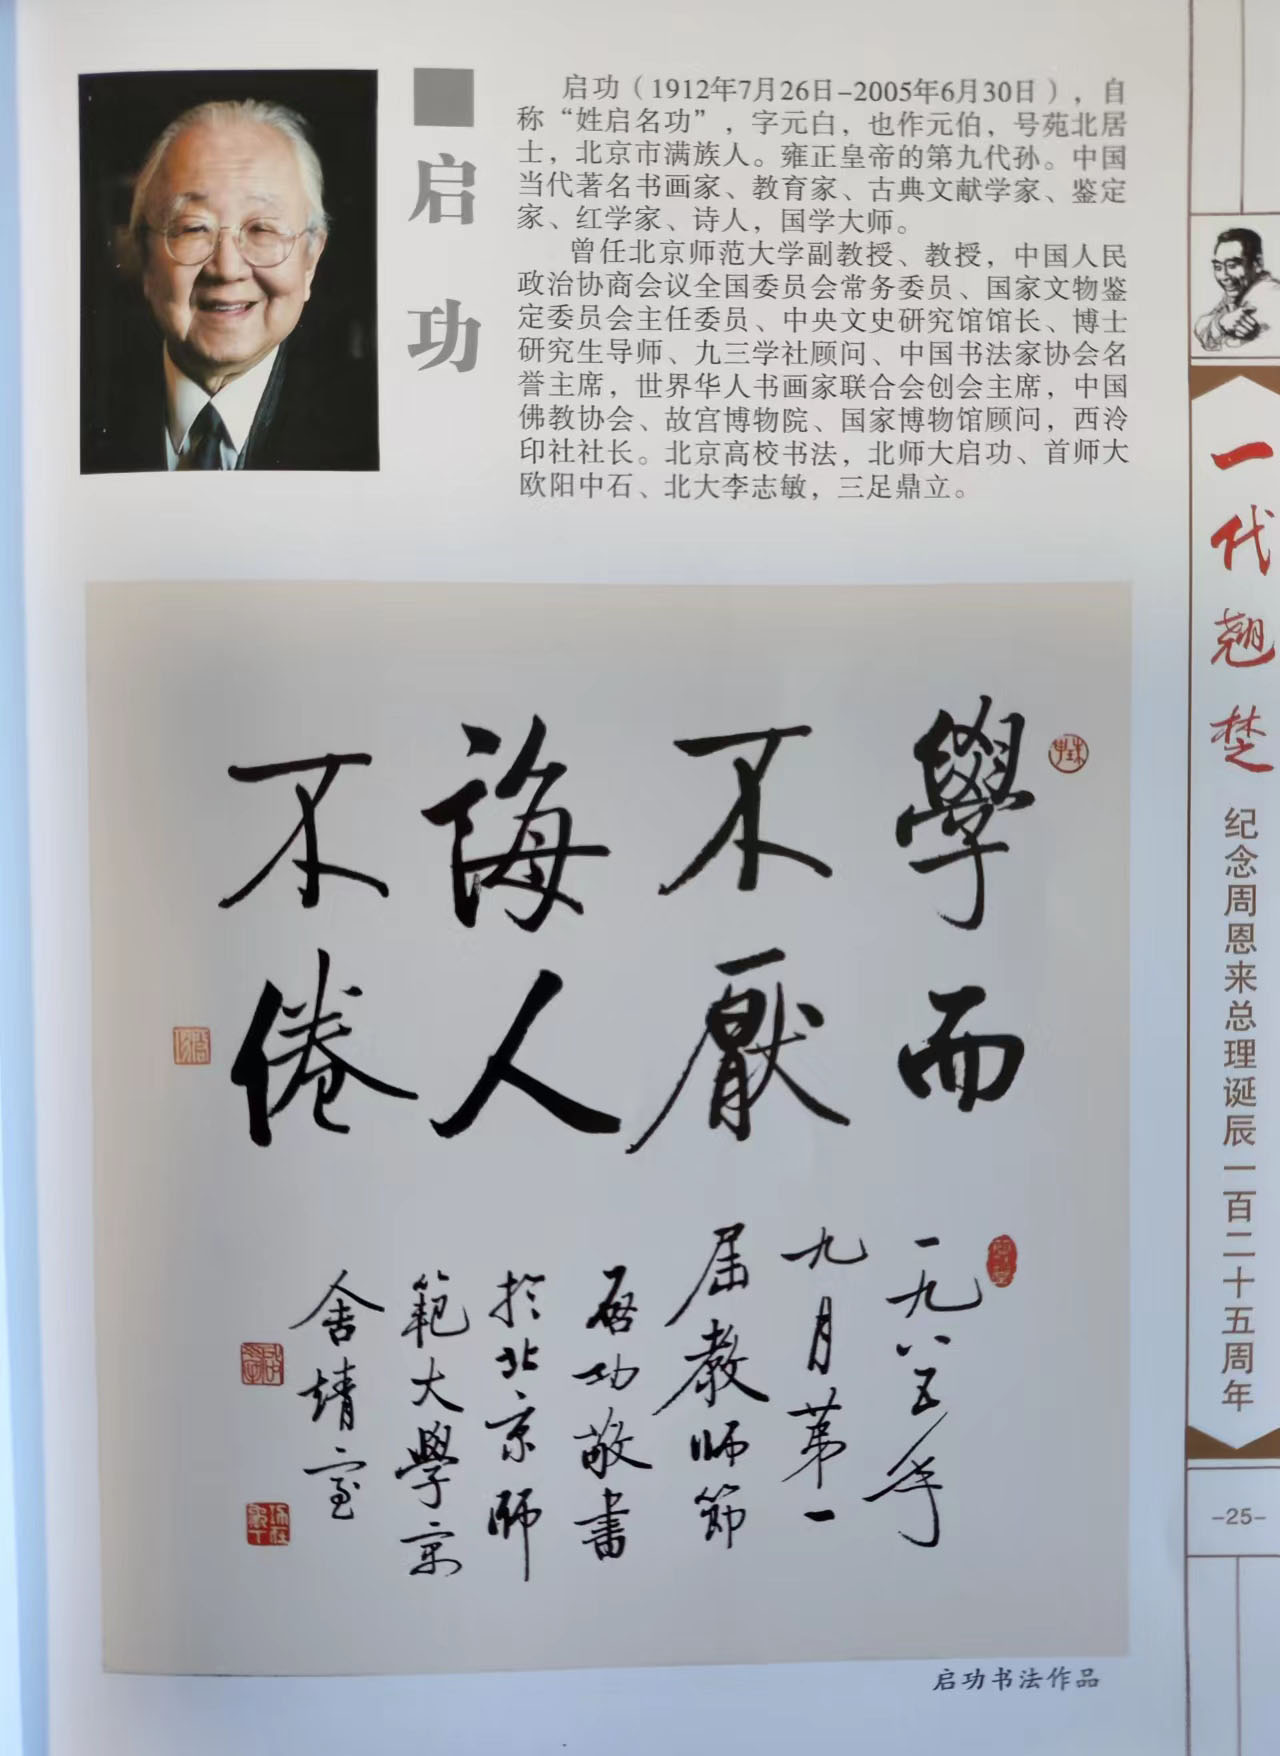 启功
启功（1912年7月26日-2005年6月30日），自
称“姓启名功”，字元白，也作元伯，号苑北居
士，北京市满族人。雍正皇帝的第九代孙。中国
当代著名书画家、教育家、古典文献学家、鉴定
家、红学家、诗人，国学大师。
曾任北京师范大学副教授、教授，中国人民
政治协商会议全国委员会常务委员、国家文物鉴
定委员会主任委员、中央文史研究馆馆长、博士
研究生导师、九三学社顾问、中国书法家协会名
誉主席，世界华人书画家联合会创会主席，中国
佛教协会、故宫博物院、国家博物馆顾问，西泠
印社社长。北京高校书法，北师大启功、首师大
欧阳中石、北大李志敏，三足鼎立。
學而
不厭
誨人
不倦
一九八五年
九月第一
届教師節
啟功敬書
於北京師
範大學宿
舍靖室
启功书法作品
一代翘楚
纪念周恩来总理诞辰一百二十五周年
-25-